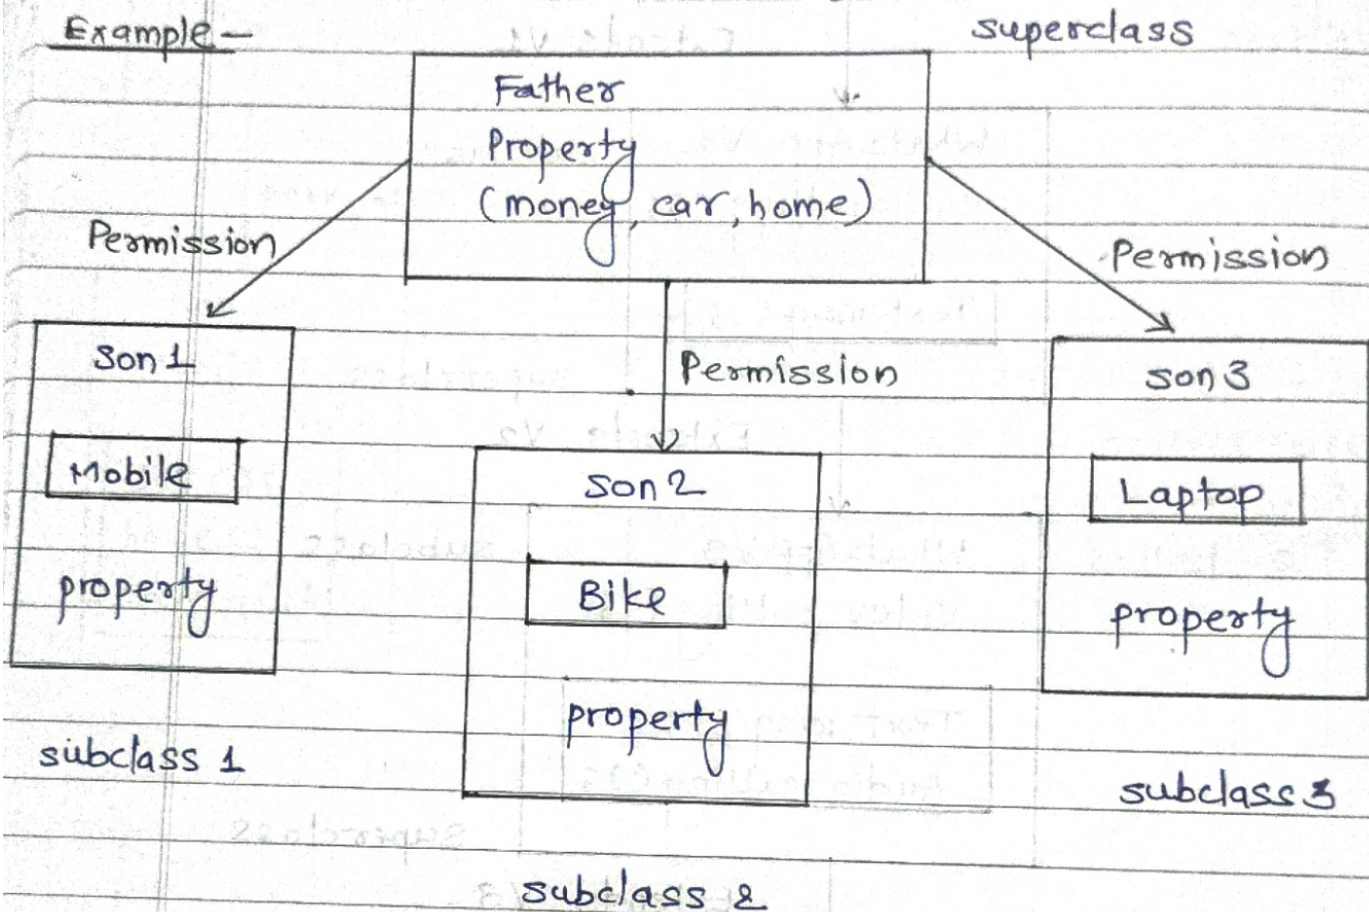 Example -
superclass
Father
Property
(money, car, home)
Permission
Permission
Permission
Son 1
Mobile
property
subclass 1
Son 2
Bike
property
subclass 2
son 3
Laptop
property
subclass 3